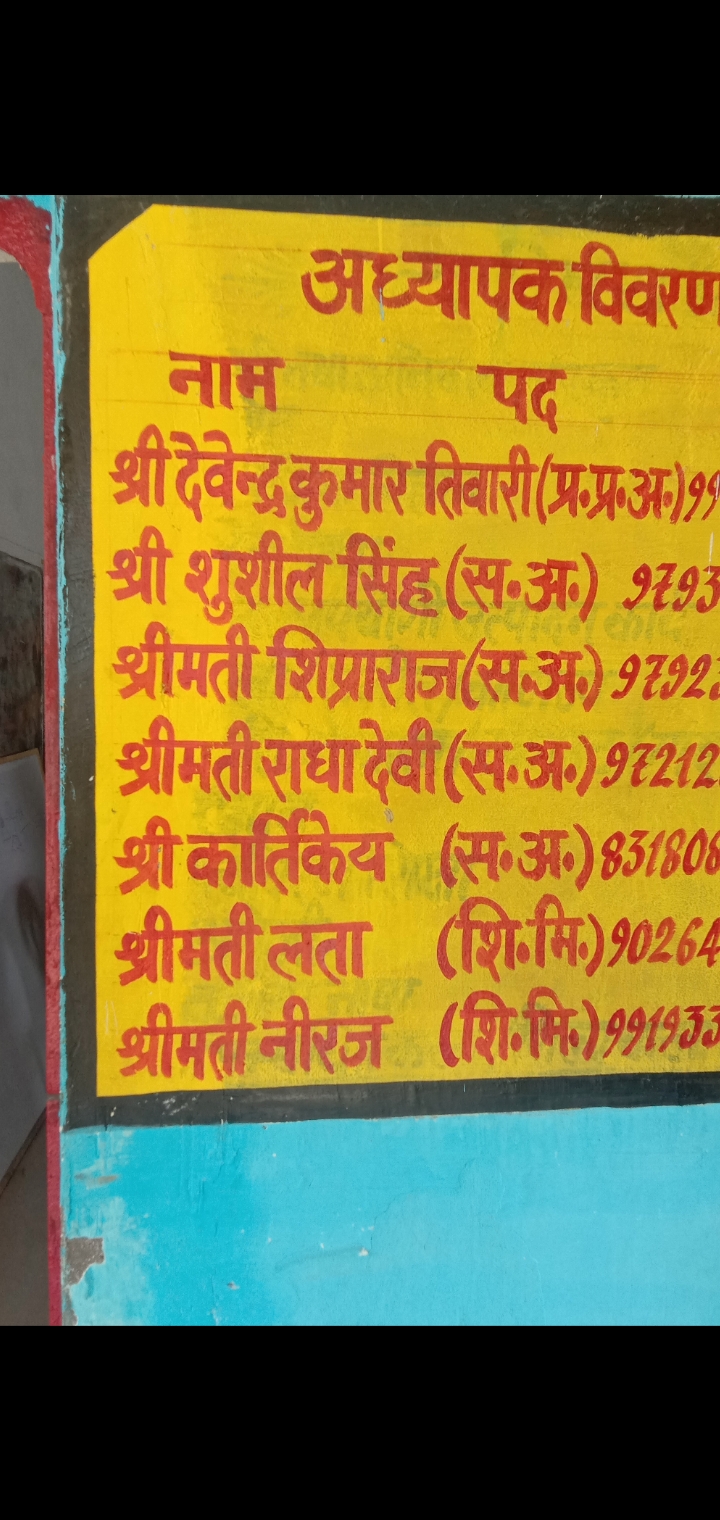 अध्यापक विवरण
नाम पद
श्री देवेन्द्र कुमार तिवारी (प्र.प्र.अ.) 99
श्री शुशील सिंह (स.अ.) 9793
श्रीमती शिप्राराज (स.अ.) 9792
श्रीमती राधा देवी (स.अ.) 97212
श्री कार्तिकेय (स.अ.) 831808
श्रीमती लता (शि.मि.) 90264
श्रीमती नीरज (शि.मि.) 991933